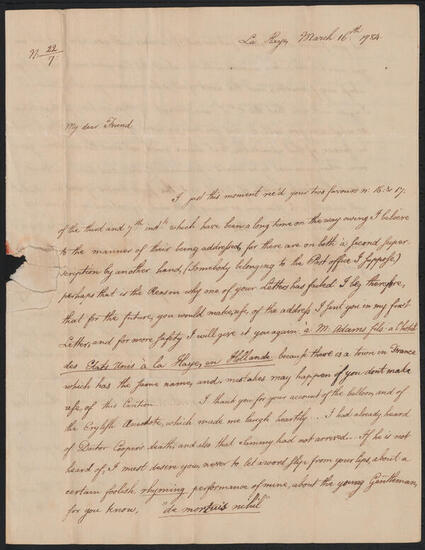 La Haye, March 16th 1784
N. 22/7
My dear Friend
I just this moment rec'd your two favours n. 16. & 17.
of the third and 7th inst. which have been a long time on the way owing I believe
to the manner of their being addressed, for there are on both a second super
scription by another hand, (somebody belonging to the Post office I suppose)
perhaps that is the Reason why one of your Letters has failed I beg therefore,
that for the future, you would make use, of the address I sent you in my first
Letter, and for more safety I will give it you again à M. Adams fils a l'hotel
des Etats Unis à la Haye, en Hollande because there is a town in France
which has the same name, and mistakes may happen if you don't make
use, of this Caution I thank you for your account of the balloon, and of
the English Anecdote, which made me laugh heartily . . I had already heard
of Doctor Cooper's death, and also that Jemmy had not arrived . . If he is not
heard of, I must desire you never to let a word slip from your lips, about a
certain foolish rhyming performance of mine, about the young Gentleman,
for you know, "de mortuis nihil"